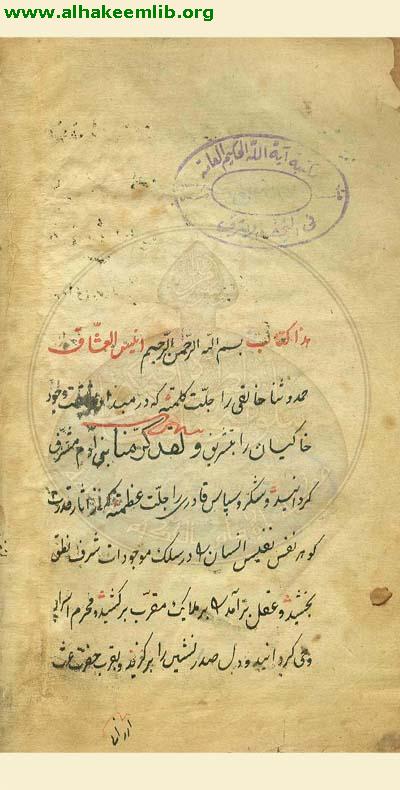 www.alhakeemlib.org
مكتبة آية الله الحكيم العامة
في النجف الاشرف
هذا كتاب بسم الله الرحمن الرحيم انيس العشاق
حمد و ثنا خالقی را جلت کلمته که در مبداء وجود
خاکیان را بتشریف ولقد کرمنا بنی آدم مشرف
کردانید و شکر و سپاس قادری را جلت عظمته که از آثار قدرت
کوهر نفس نفیس انسان را در سلک موجودات شرف نطق
بخشید و عقل را بر ملایک مقرب برکشید و محرم اسرار
وحی کردانید و دل صدر نشین را بقرب حضرت عزت